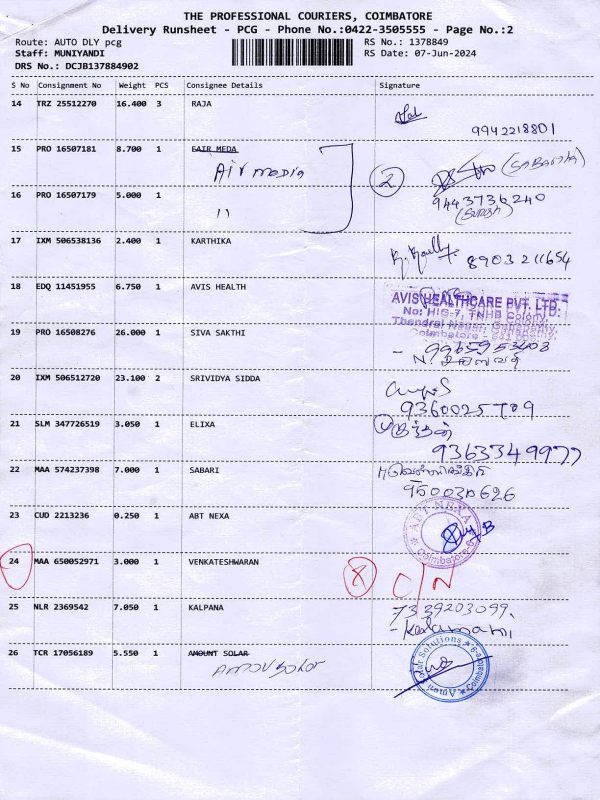 THE PROFESSIONAL COURIERS, COIMBATORE
Delivery Runsheet - PCG - Phone No.:0422-3505555 - Page No.:2
Route: AUTO DLY pcg RS No.: 1378849
Staff: MUNIYANDI RS Date: 07-Jun-2024
DRS No.: DCJB137884902
S No Consignment No Weight PCS Consignee Details Signature
14 TRZ 25512270 16.400 3 RAJA
9942218801
15 PRO 16507181 8.700 1 FAIR MEDA
Air media
2 (SABARIHA)
16 PRO 16507179 5.000 1
9443736240
11
17 IXM 506538136 2.400 1 KARTHIKA
8903211654
18 EDQ 11451955 6.750 1 AVIS HEALTH
AVIS HEALTHCARE PVT. LTD.
No: HIG-7, TNHB Colony,
19 PRO 16508276 26.000 1 SIVA SAKTHI
- 9965953408
20 IXM 506512720 23.100 2 SRIVIDYA SIDDA
9360025709
21 SLM 347726519 3.050 1 ELIXA
9363349977
22 MAA 574237398 7.000 1 SABARI
950030626
23 CUD 2213236 0.250 1 ABT NEXA
ABT NEXA
Coimbatore-6
24 MAA 650052971 3.000 1 VENKATESHWARAN
C/N
25 NLR 2369542 7.050 1 KALPANA
7339203099.
26 TCR 17056189 5.550 1 AMOUNT SOLAR
Amou solar
Amou Solar Solutions Coimbatore-6